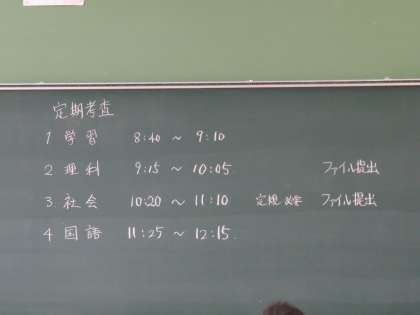 定期考査
1 学習 8:40 ～ 9:10
2 理科 9:15 ～ 10:05 ファイル提出
3 社会 10:20 ～ 11:10 定規 必要 ファイル提出
4 国語 11:25 ～ 12:15.